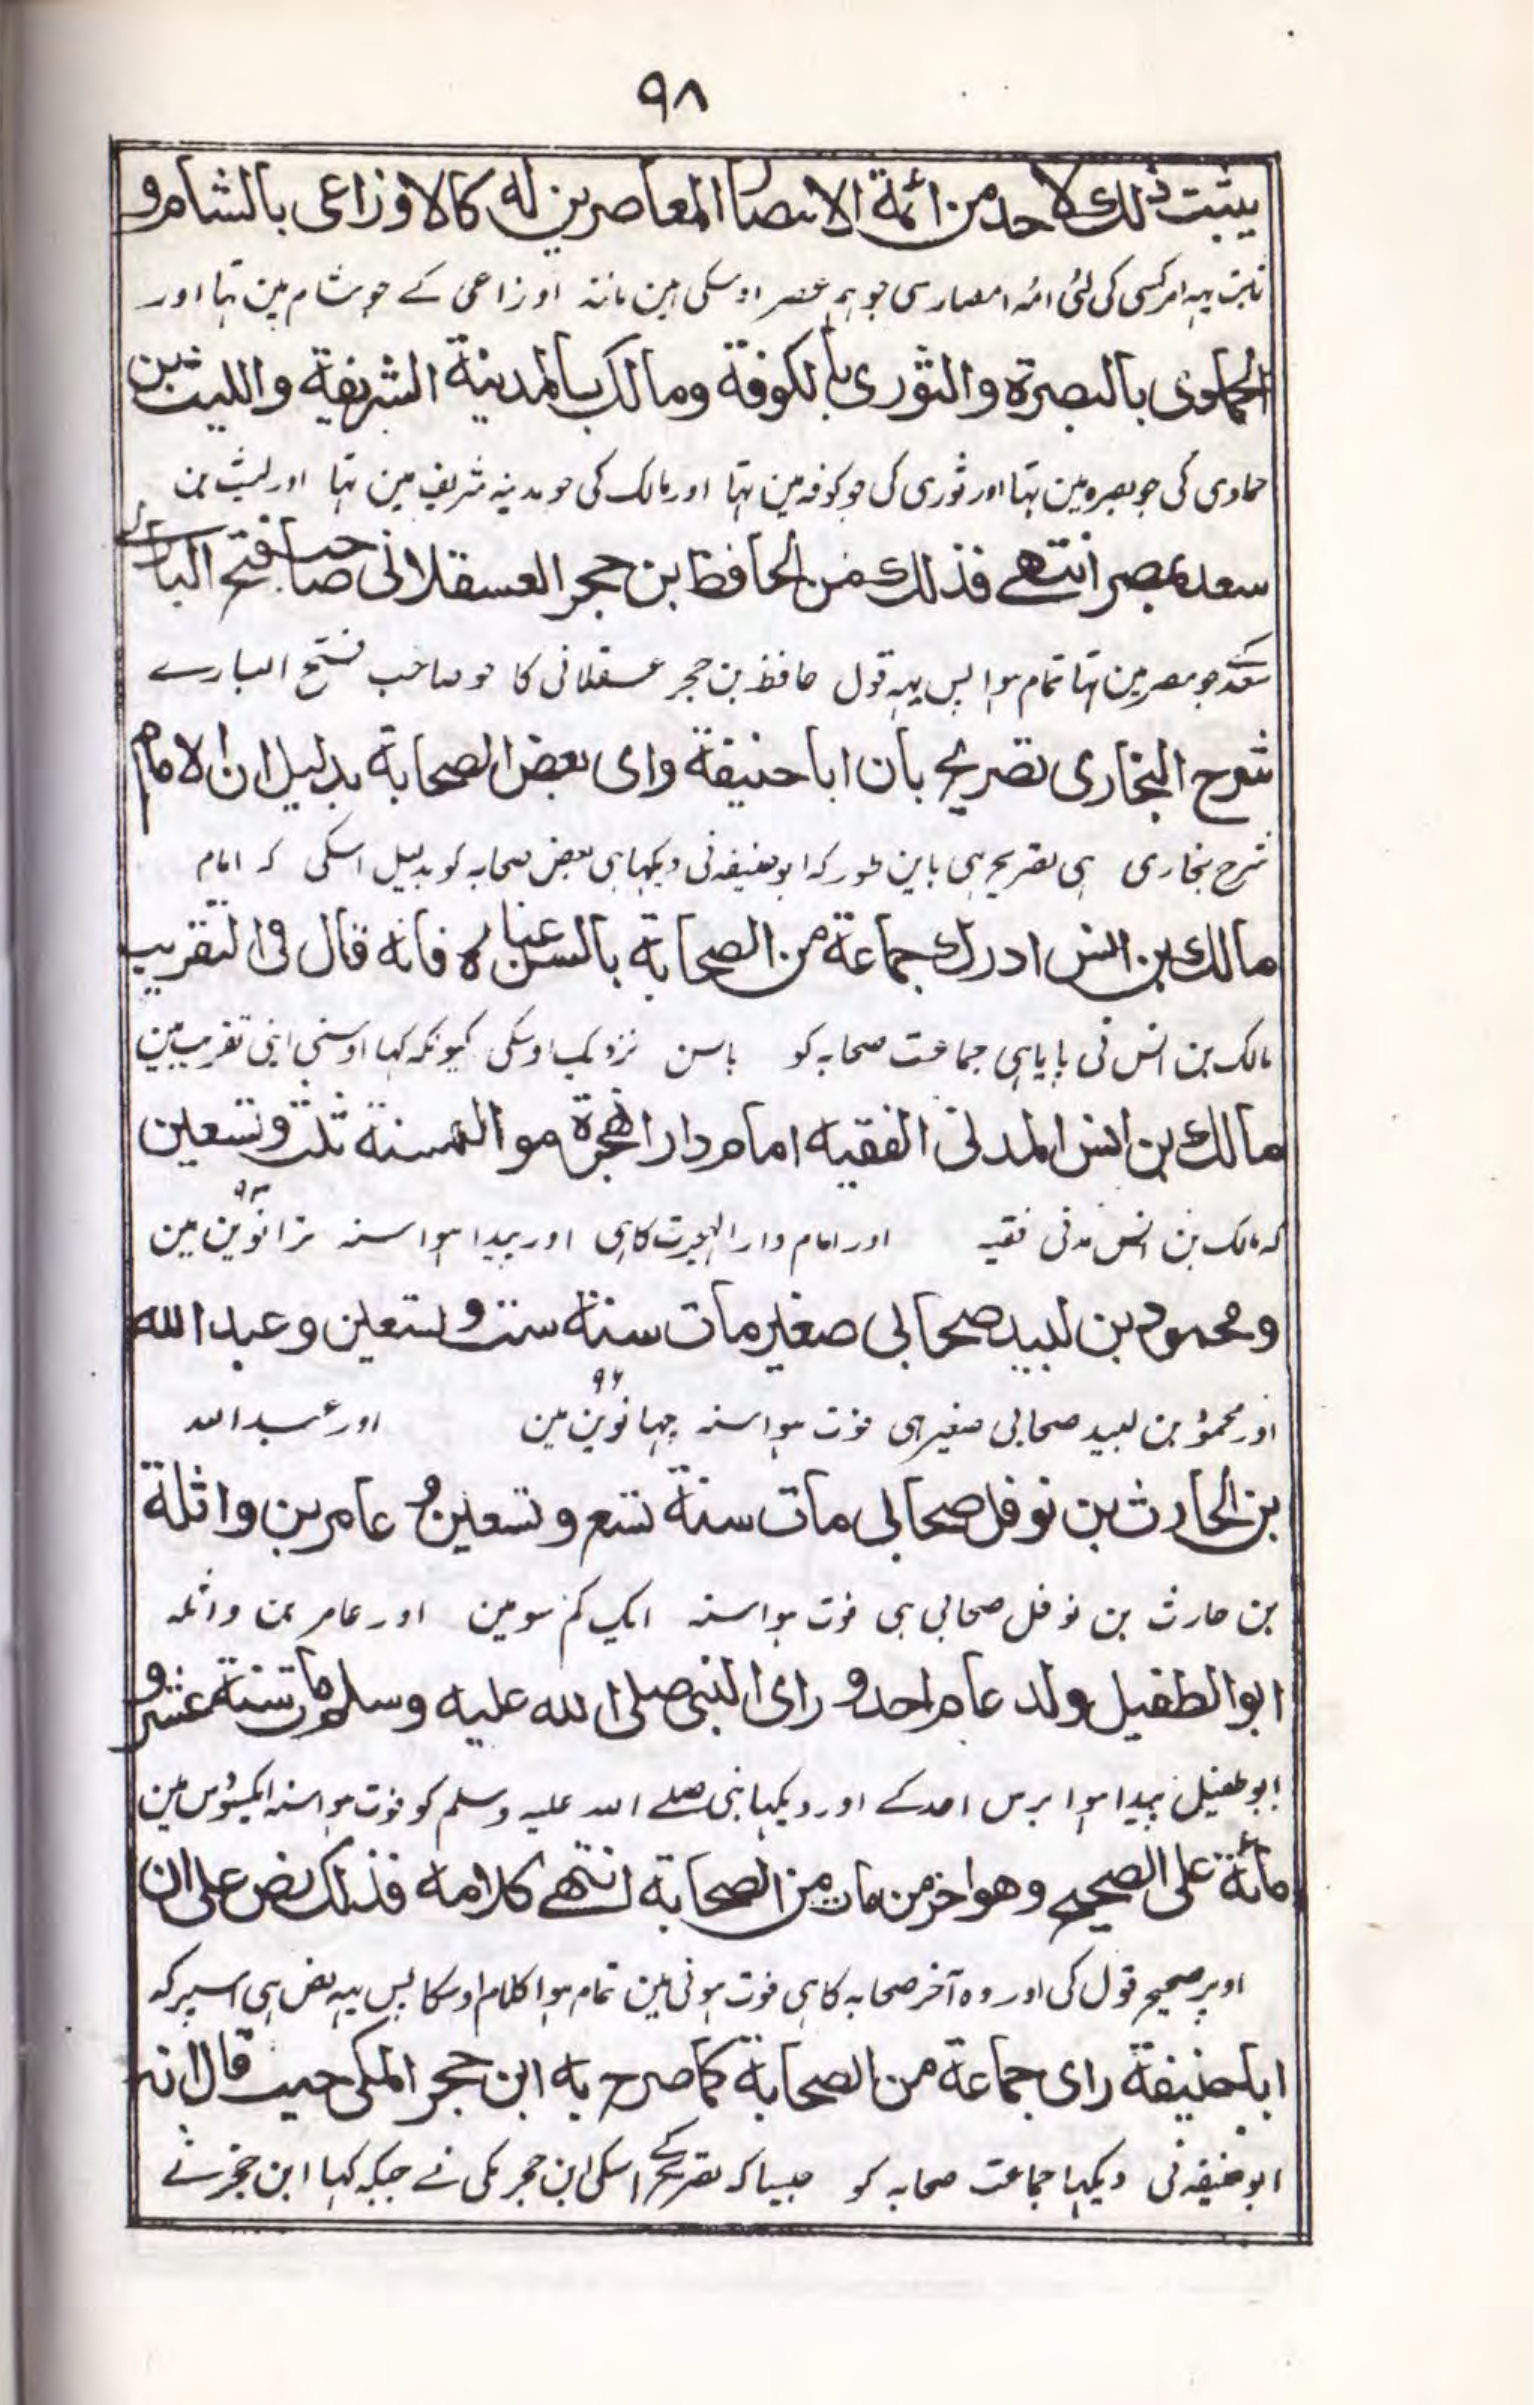 ٩٨
يثبت ذلك لاحد من ائمة الامصار المعاصرين له كالاوزاعى بالشام و
ثابت یہہ امر کسی کی لئی ائمہ امصار سی جو ہم عصر اوسکی ہین مانند اوزاعی کے جو شام مین تہا اور
الحمادى بالبصرة والثورى بالكوفة ومالك بالمدينة الشريفة والليث بن
حمادی کی جو بصرہ مین تہا اور ثوری کی جو کوفہ مین تہا اور مالک کی جو مدینہ شریف مین تہا اور لیث بن
سعد بمصر انتهے فذلك من الحافظ بن حجر العسقلانى صاحب فتح البارے
سعد کے جو مصر مین تہا تمام ہوا پس یہہ قول حافظ بن حجر عسقلانی کا جو صاحب فتح البارے
شرح البخارى تصريح بان ابا حنيفة راى بعض الصحابة بدليل ان الامام
شرح بخاری ہی تصریح ہی باین طور کہ ابو حنیفہ نی دیکہا ہی بعض صحابہ کو بدلیل اسکی کہ امام
مالك بن انس ادرك جماعة من الصحابة بالسن عنده فانه قال فى التقريب
مالک بن انس نی پایا ہی جماعت صحابہ کو باسن نزدیک اوسکی کیونکہ کہا اوسنی اپنی تقریب مین
مالك بن انس المدنى الفقيه امام دار الهجرة مولده سنة ثلث وتسعين
کہ مالک بن انس مدنی فقیہ اور امام دار الہجرت کا ہی اور پیدا ہوا سنہ ترانوین ۹۳ مین
ومحمود بن لبيد صحابى صغير مات سنة ست وتسعين وعبد الله
اور محمود بن لبید صحابی صغیر ہی فوت ہوا سنہ چہیانوین ۹۶ مین اور عبد اللہ
بن الحارث بن نوفل صحابى مات سنة تسع وتسعين و عامر بن واثلة
بن حارث بن نوفل صحابی ہی فوت ہوا سنہ ایک کم سو مین اور عامر بن واثلہ
ابو الطفيل ولد عام احد و راى النبى صلى الله عليه وسلم مات سنة عشر و
ابو طفیل پیدا ہوا برس احد کے اور دیکہا نبی صلے اللہ علیہ وسلم کو فوت ہوا سنہ ایکسودس مین
مائة على الصحيح وهو اخر من مات من الصحابة انتهے كلامه فذلك نص على ان
اوپر صحیح قول کی اور وہ آخر صحابہ کا ہی فوت ہونی مین تمام ہوا کلام اوسکا پس یہہ نص ہی اسپر کہ
ابا حنيفة راى جماعة من الصحابة كما صرح به ابن حجر المكى حيث قال انه
ابو حنیفہ نی دیکہا جماعت صحابہ کو جیسا کہ تصریح کے اسکی ابن حجر مکی نے جبکہ کہا ابن حجر نے